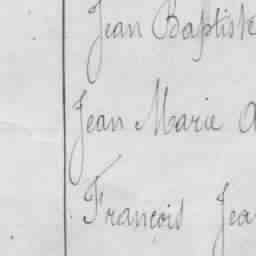 Jean Baptiste
Jean Marie
François Jea